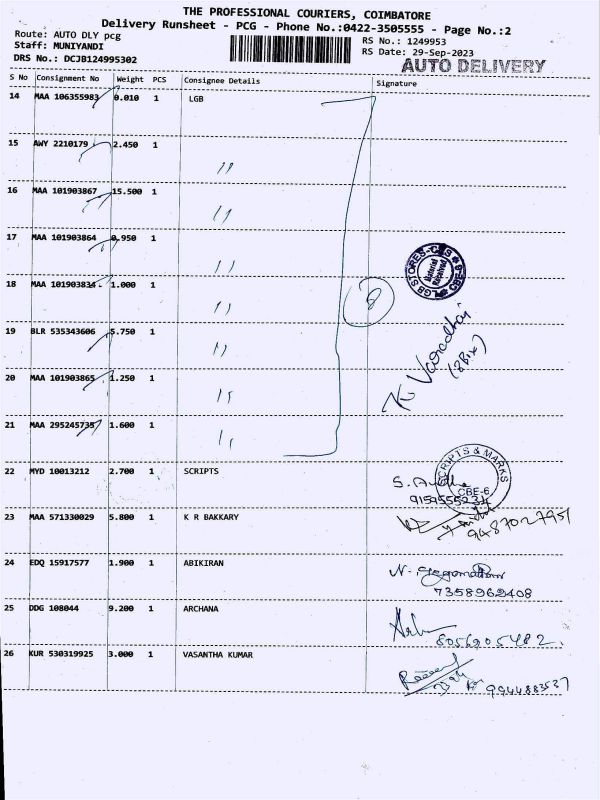 THE PROFESSIONAL COURIERS, COIMBATORE
Delivery Runsheet - PCG - Phone No.:0422-3505555 - Page No.:2
Route: AUTO DLY pcg
RS No.: 1249953
Staff: MUNIYANDI
RS Date: 29-Sep-2023
DRS No.: DCJB124995302
AUTO DELIVERY
S No Consignment No Weight PCS Consignee Details Signature
14 MAA 106355983 0.010 1 LGB
15 AWY 2210179 2.450 1 ,,
16 MAA 101903867 15.500 1 ,,
17 MAA 101903864 0.950 1 ,,
18 MAA 101903834 1.000 1 ,,
19 BLR 535343606 5.750 1 ,,
20 MAA 101903865 1.250 1 ,,
21 MAA 295245735 1.600 1 ,,
8
LGB STORES
Material Received
(8Bix)
22 MYD 10013212 2.700 1 SCRIPTS
SCRIPTS & MARKS
CBE-6
9159555234
23 MAA 571330029 5.800 1 K R BAKKARY
9487027951
24 EDQ 15917577 1.900 1 ABIKIRAN
7358962408
25 DDG 108044 9.200 1 ARCHANA
8056905482
26 KUR 530319925 3.000 1 VASANTHA KUMAR
9944883537